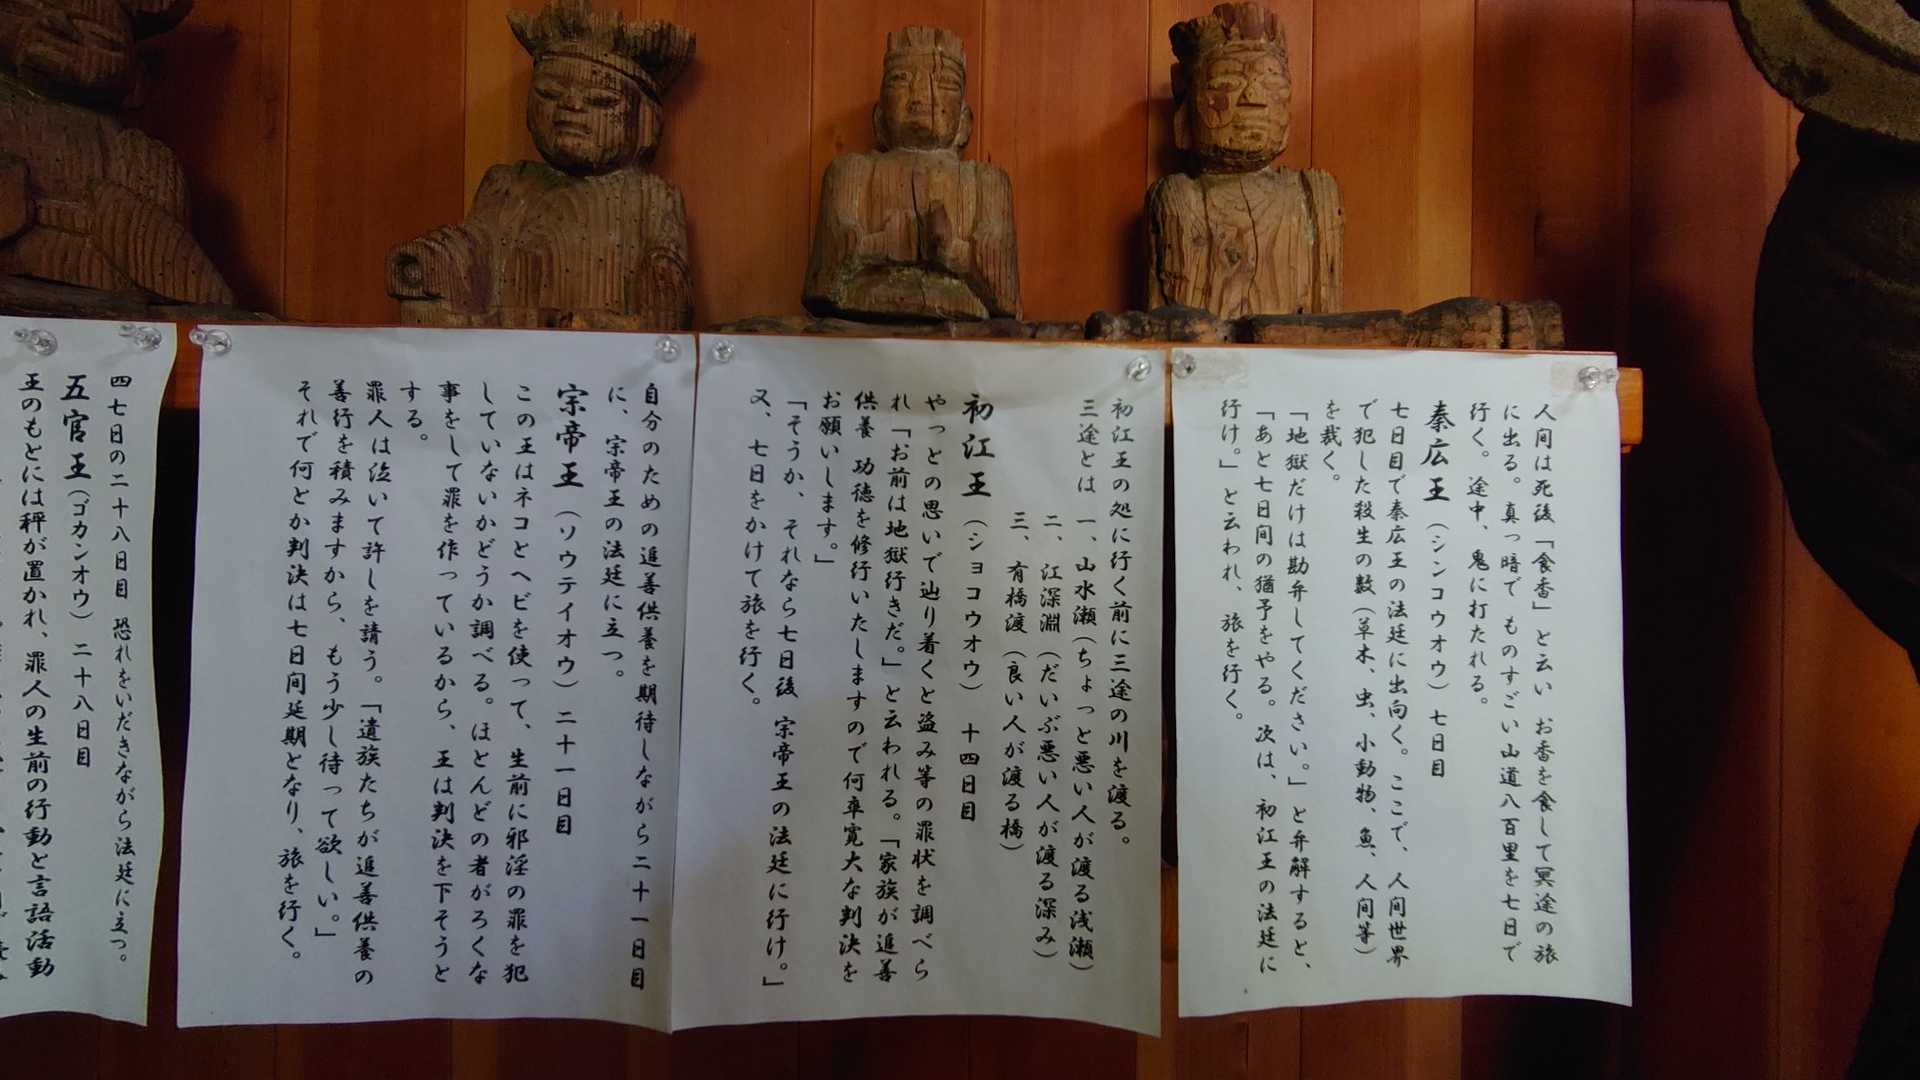 人間は死後「食香」と云い お香を食して冥途の旅
に出る。真っ暗で ものすごい山道八百里を七日で
行く。途中、鬼に打たれる。
秦広王(シンコウオウ)七日目
七日目で秦広王の法廷に出向く。ここで、人間世界
で犯した殺生の数(草木、虫、小動物、魚、人間等)
を裁く。
「地獄だけは勘弁してください。」と弁解すると、
「あと七日間の猶予をやる。次は、初江王の法廷に
行け。」と云われ、旅を行く。
初江王の処に行く前に三途の川を渡る。
三途とは 一、山水瀬(ちょっと悪い人が渡る浅瀬)
二、江深淵(だいぶ悪い人が渡る深み)
三、有橋渡(良い人が渡る橋)
初江王(ショコウオウ)十四日目
やっとの思いで辿り着くと盗み等の罪状を調べら
れ「お前は地獄行きだ。」と云われる。「家族が追善
供養 功徳を修行いたしますので何卒寛大な判決を
お願いします。」
「そうか、それなら七日後 宗帝王の法廷に行け。」
又、七日をかけて旅を行く。
自分のための追善供養を期待しながら二十一日目
に、宗帝王の法廷に立つ。
宗帝王(ソウテイオウ)二十一日目
この王はネコとヘビを使って、生前に邪淫の罪を犯
していないかどうか調べる。ほとんどの者がろくな
事をして罪を作っているから、王は判決を下そうと
する。
罪人は泣いて許しを請う。「遺族たちが追善供養の
善行を積みますから、もう少し待って欲しい。」
それで何とか判決は七日間延期となり、旅を行く。
四七日の二十八日目 恐れをいだきながら法廷に立つ。
五官王(ゴカンオウ)二十八日目
王のもとには秤が置かれ、罪人の生前の行動と言語活動